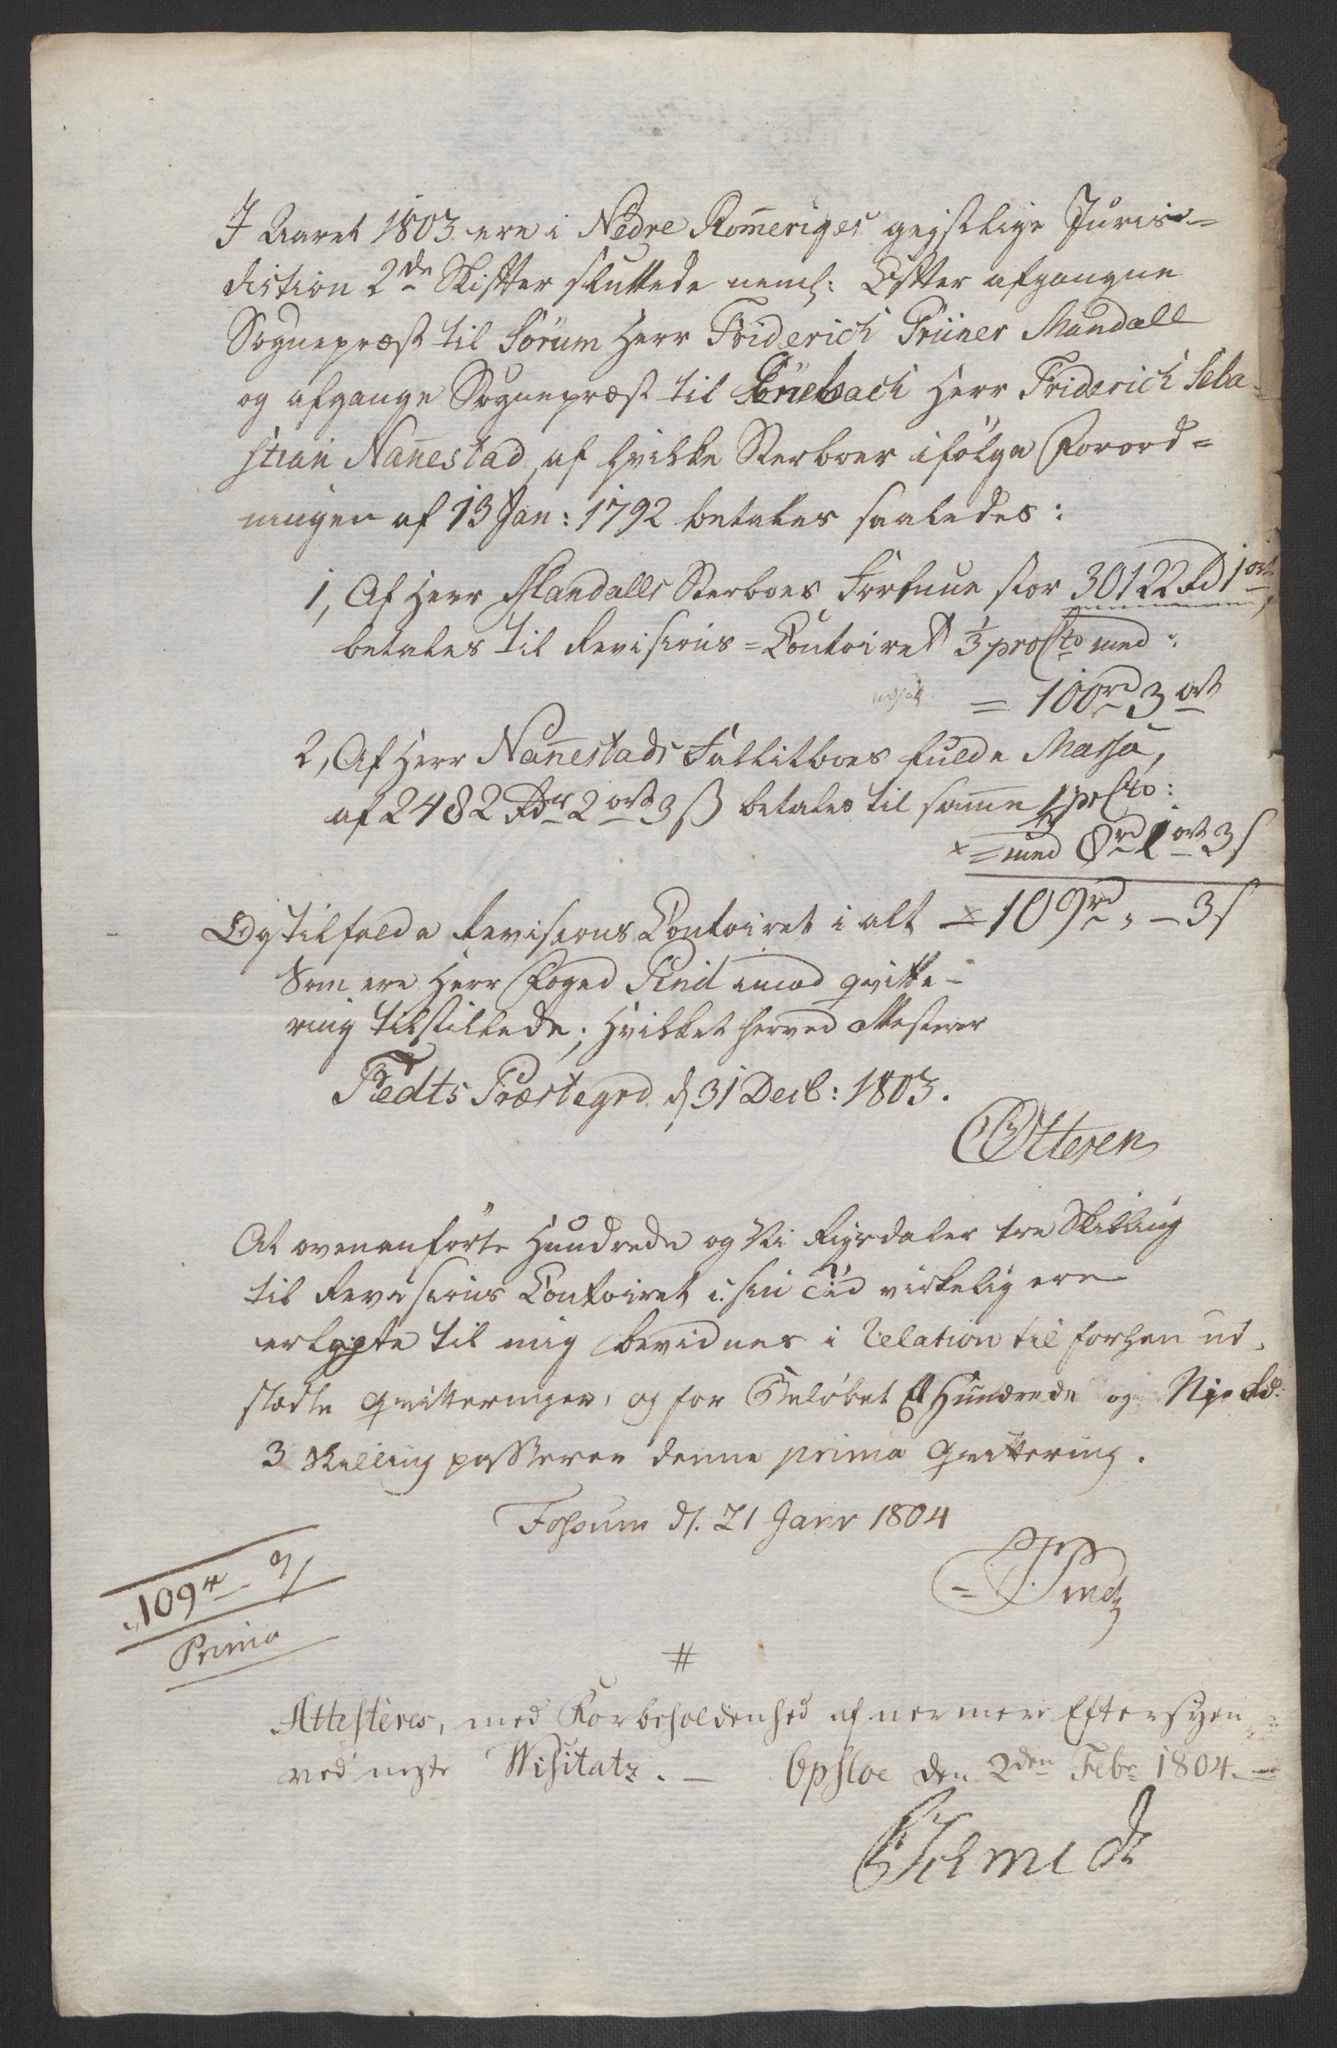 I Aaret 1803 ere i Nedre Rom̄eriges geistlige Juris-
diction 2de Skifter sluttede neml: Efter afgangne
Sognepræst til Sørum Herr Friderich Grüner Mandall
og afgangne Sognepræst til Herr Friderich Seba-
stian Nan̄estad, af hvilke Sterboer ifølge Forord-
ningen af 13 Jan: 1792 betales saaledes:
1, Af Herr Mandalls Sterboes Formue stor 30122 Rd 1 ort
betales til Revisions-Contoiret 1/3 proCto med:
= 100rd 3 ort
2, Af Herr Nan̄estads Fallitboes fulde Massa,
af 2482 Rdr 2 ort 3 ß betales til sam̄e 1/3 prCto:
× = med 8rd 1 ort 3 s
Og tilfalde Revisions Contoiret i alt × 109rd " - 3 s
Som ere Herr Foged Pind imod qvitte-
ring tilstillede; hvilket herved attesterer
Fedts Præstegrd d 31 Decb: 1803.
Ottesen
At ovenanførte Hundrede og Ni Rigsdaler tre Skilling
til Revisions Contoiret i sin Tiid virkelig ere
erlagte til mig bevidnes i Relation til forhen ud-
stædte Qvitteringer, og for Beløbet Et Hundrede og Nye Rd:
3 Skilling passerer denne prima Qvittering.
Fossum d. 21 Janr 1804
Pind
109 rd - 3 s
Prima
#
Attesteres, med Forbeholdenhed af nermere Eftersyen
ved neste Visitatz. - Opsloe den 2den Febr 1804. -
Schmidt